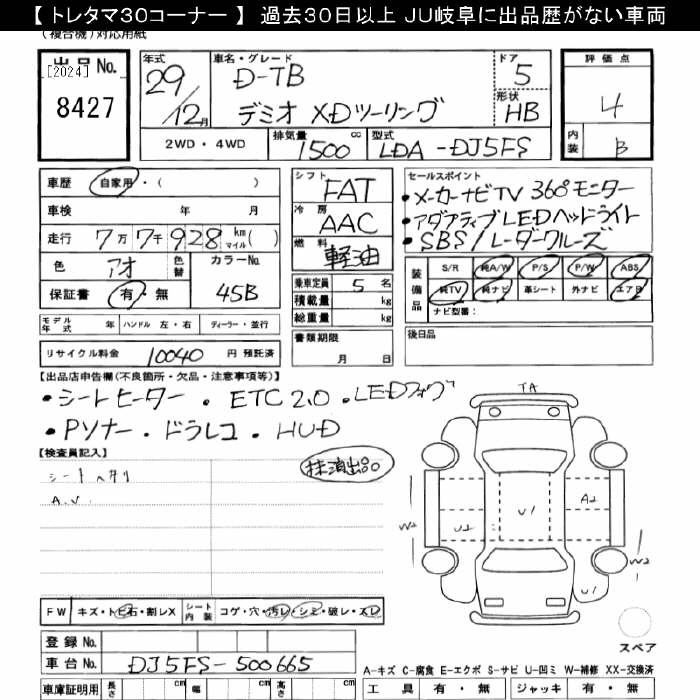 【 トレタマ30コーナー 】 過去30日以上 JU岐阜に出品歴がない車両
(複合機)対応用紙
出品No. [2024]
8427
年式
29/12月
車名・グレード
D-TB
デミオ XDツーリング
ドア
5
形状
HB
評価点
4
内装
B
2WD・4WD
排気量 1500 cc
型式 LDA-DJ5FS
車歴 自家用・( )
車検 年 月
走行 7万7千928 km マイル( )
色 アオ 色替 カラーNo. 45B
保証書 有・無
シフト FAT
冷房 AAC
燃料 軽油
乗車定員 5 名
積載量 kg
総重量 kg
書類期限
月 日
セールスポイント
・メーカーナビTV 360°モニター
・アダプティブLEDヘッドライト
・SBS/レーダークルーズ
装備品
S/R 純A/W P/S P/W ABS
純TV 純ナビ 革シート 外ナビ エアB
ナビ型番:
後日品
モデル年式 年 ハンドル 左・右 ディーラー・並行
リサイクル料金 10040 円 預託済
【出品店申告欄(不良箇所・欠品・注意事項等)】
・シートヒーター ・ETC2.0 ・LEDフォグ
・Pソナー ・ドラレコ ・HUD
【検査員記入】
抹消出品
シートヘタリ
A.V.
TA
W2
U2
U1
A2
W2
U1
スペア
FW キズ・トビ石・割レX
シート内装 コゲ・穴・汚レ・シミ・破レ・スレ
登録No.
車台No. DJ5FS-500665
車庫証明用 長さ cm 幅 cm 高さ cm
A-キズ C-腐食 E-エクボ S-サビ U-凹ミ W-補修 XX-交換済
工具 有・無 ジャッキ 有・無